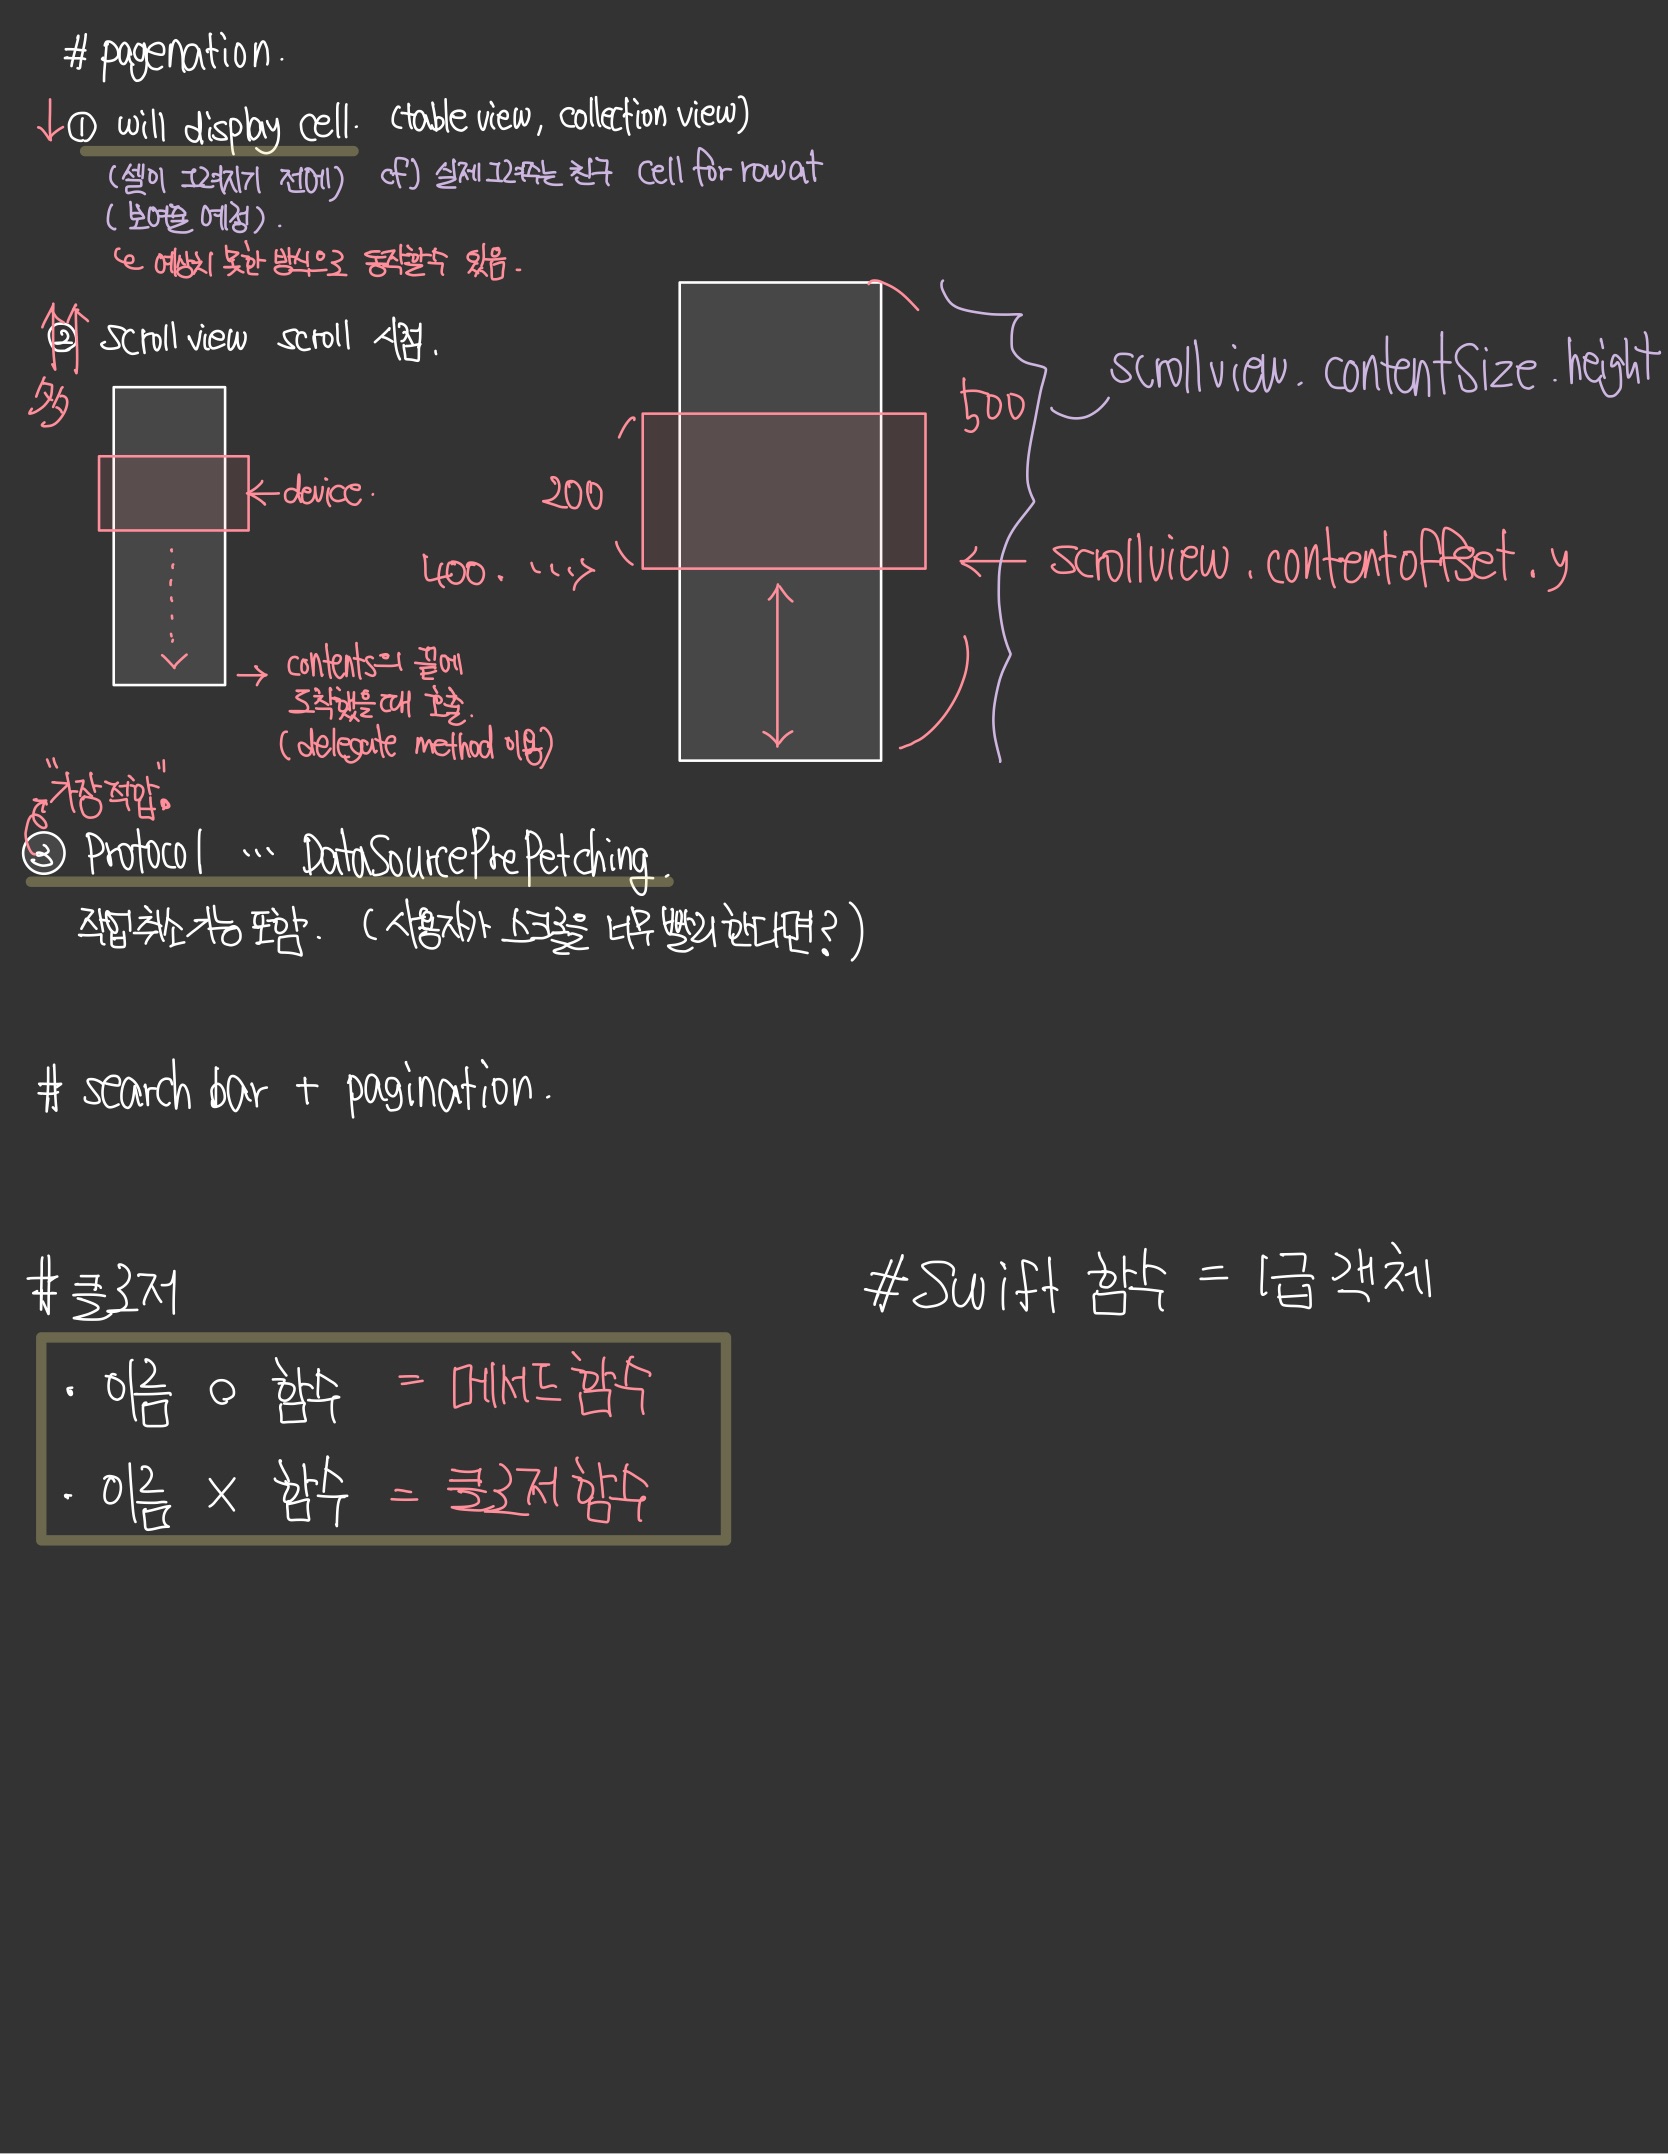 # pagenation.
↓ ① will display cell. (table view, collection view)
(셀이 그려지기 전에) cf) 실제 그려주는 친구 cell for row at
(보여줄 예정).
예상치 못한 방식으로 동작할 수 있음.
② scroll view scroll 시점.
scrollview. contentSize. height
500
200
← device.
400. ⋯>
← scrollview. contentoffset. y
→ contents의 끝에
도착했을 때 호출.
(delegate method 이용)
"가장 적합."
③ Protocol ⋯ DataSourcePrePetching.
작업 취소 기능 포함. (사용자가 스크롤을 너무 빨리 한다면?)
# search bar + pagination.
# 클로저
# Swift 함수 = 1급 객체
· 이름 O 함수 = 메서드 함수
· 이름 X 함수 = 클로저 함수